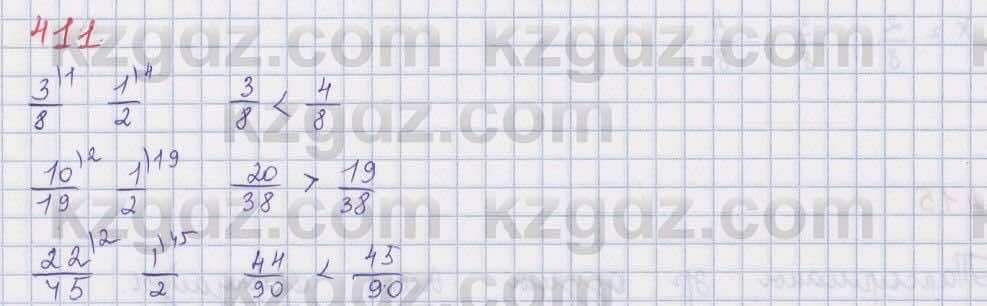 411.
3/8 )1 1/2 )4 3/8 < 4/8
10/19 )2 1/2 )19 20/38 > 19/38
22/45 )2 1/2 )45 44/90 < 45/90
kzgdz.com
kzgdz.com
kzgdz.com
kzgdz.com
kzgdz.com
kzgdz.com